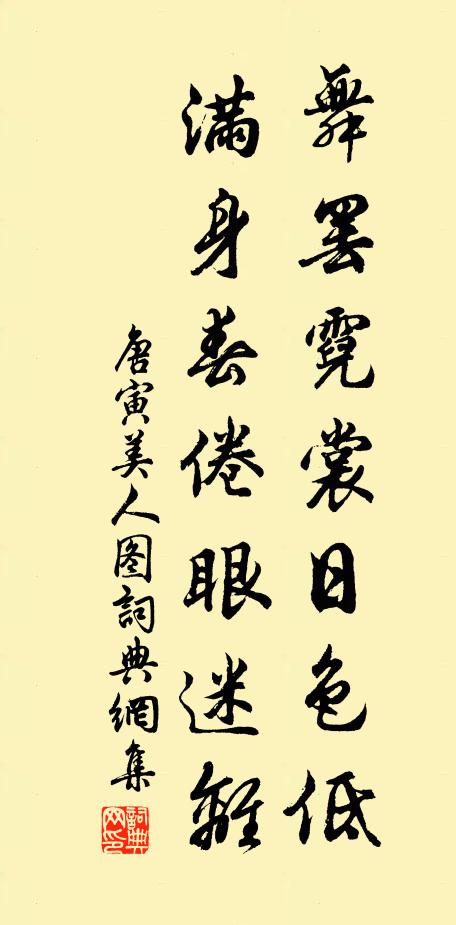 舞罢霓裳日色低
满身春倦眼迷離
唐寅美人图詞典網集
詞典网印